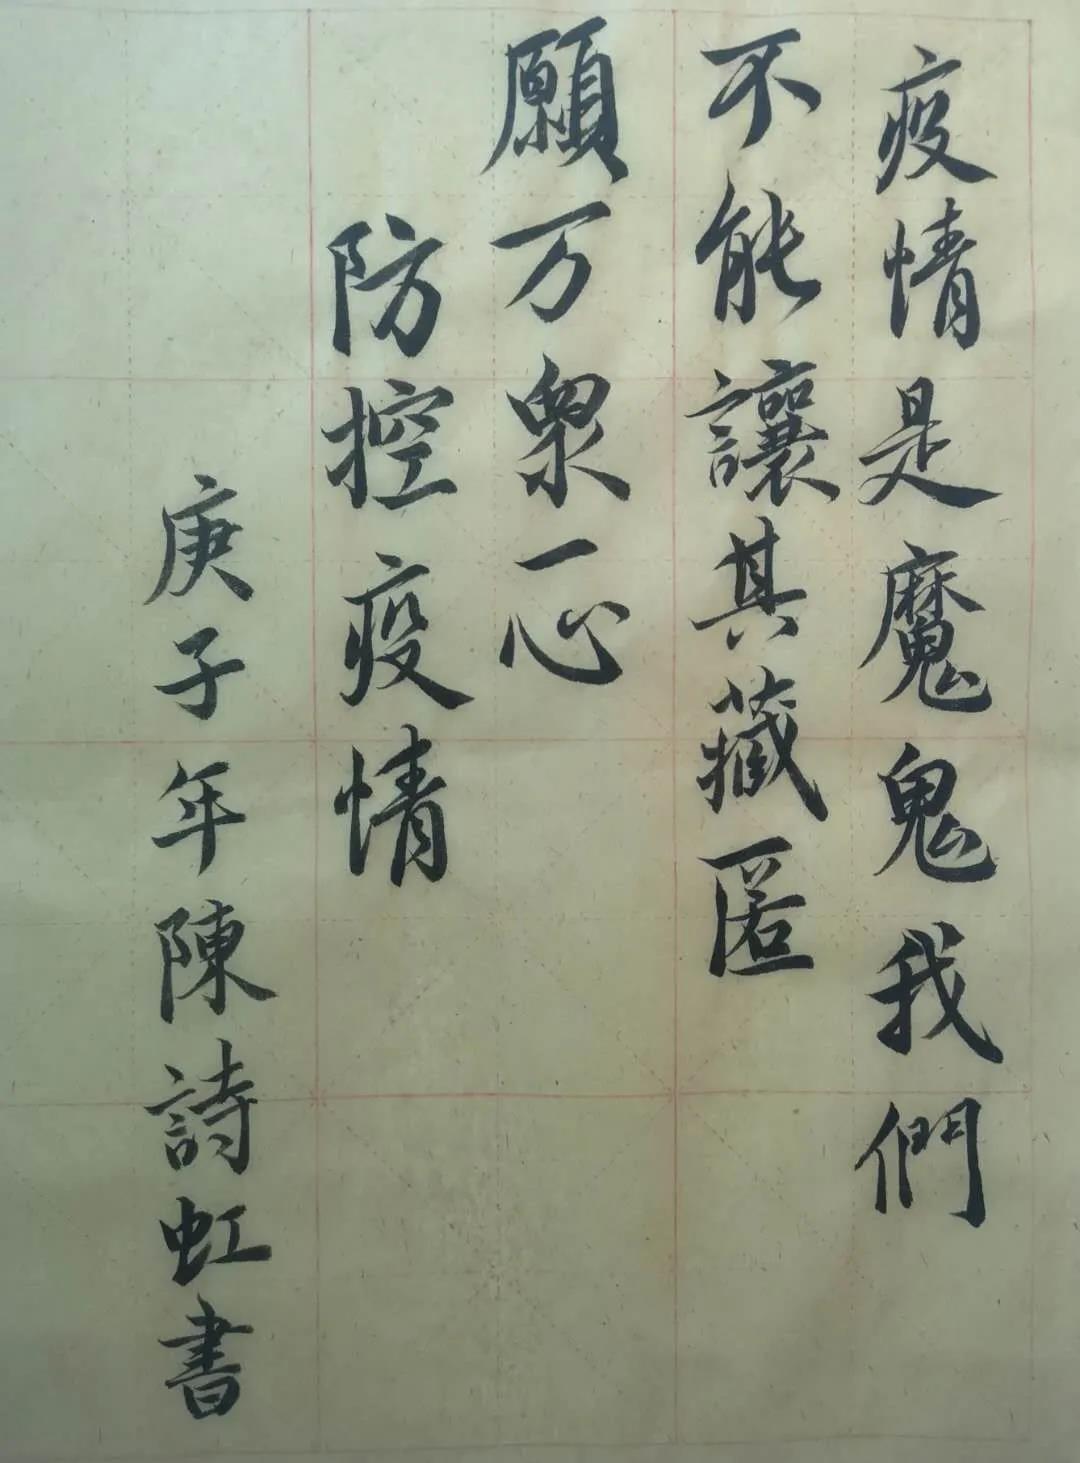 疫情是魔鬼我們
不能讓其藏匿
願万眾一心
防控疫情
庚子年陳詩虹書